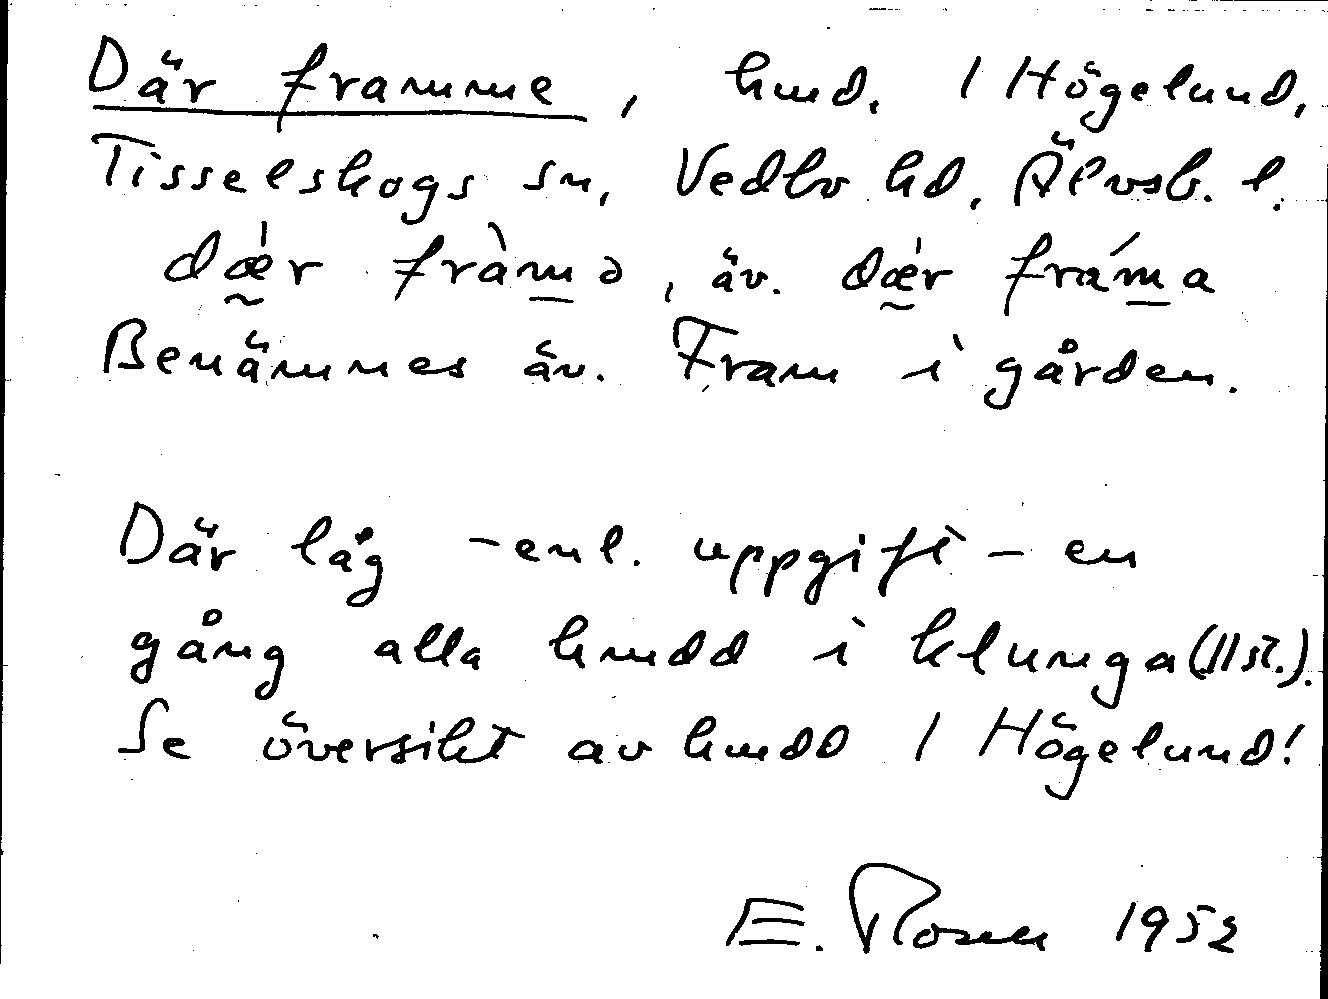 Där framme, hmd. 1 Högelund,
Tisselskogs sn, Vedbo hd. Älvsb. l.
dǽ̰r fràm̲ə, äv. dǽ̰r frám̲a
Benämnes äv. Fram i gården.
Där låg - enl. uppgift - en
gång alla hmdd i klunga (11 st.).
Se översikt av hmdd 1 Högelund!
E. Rosen 1952